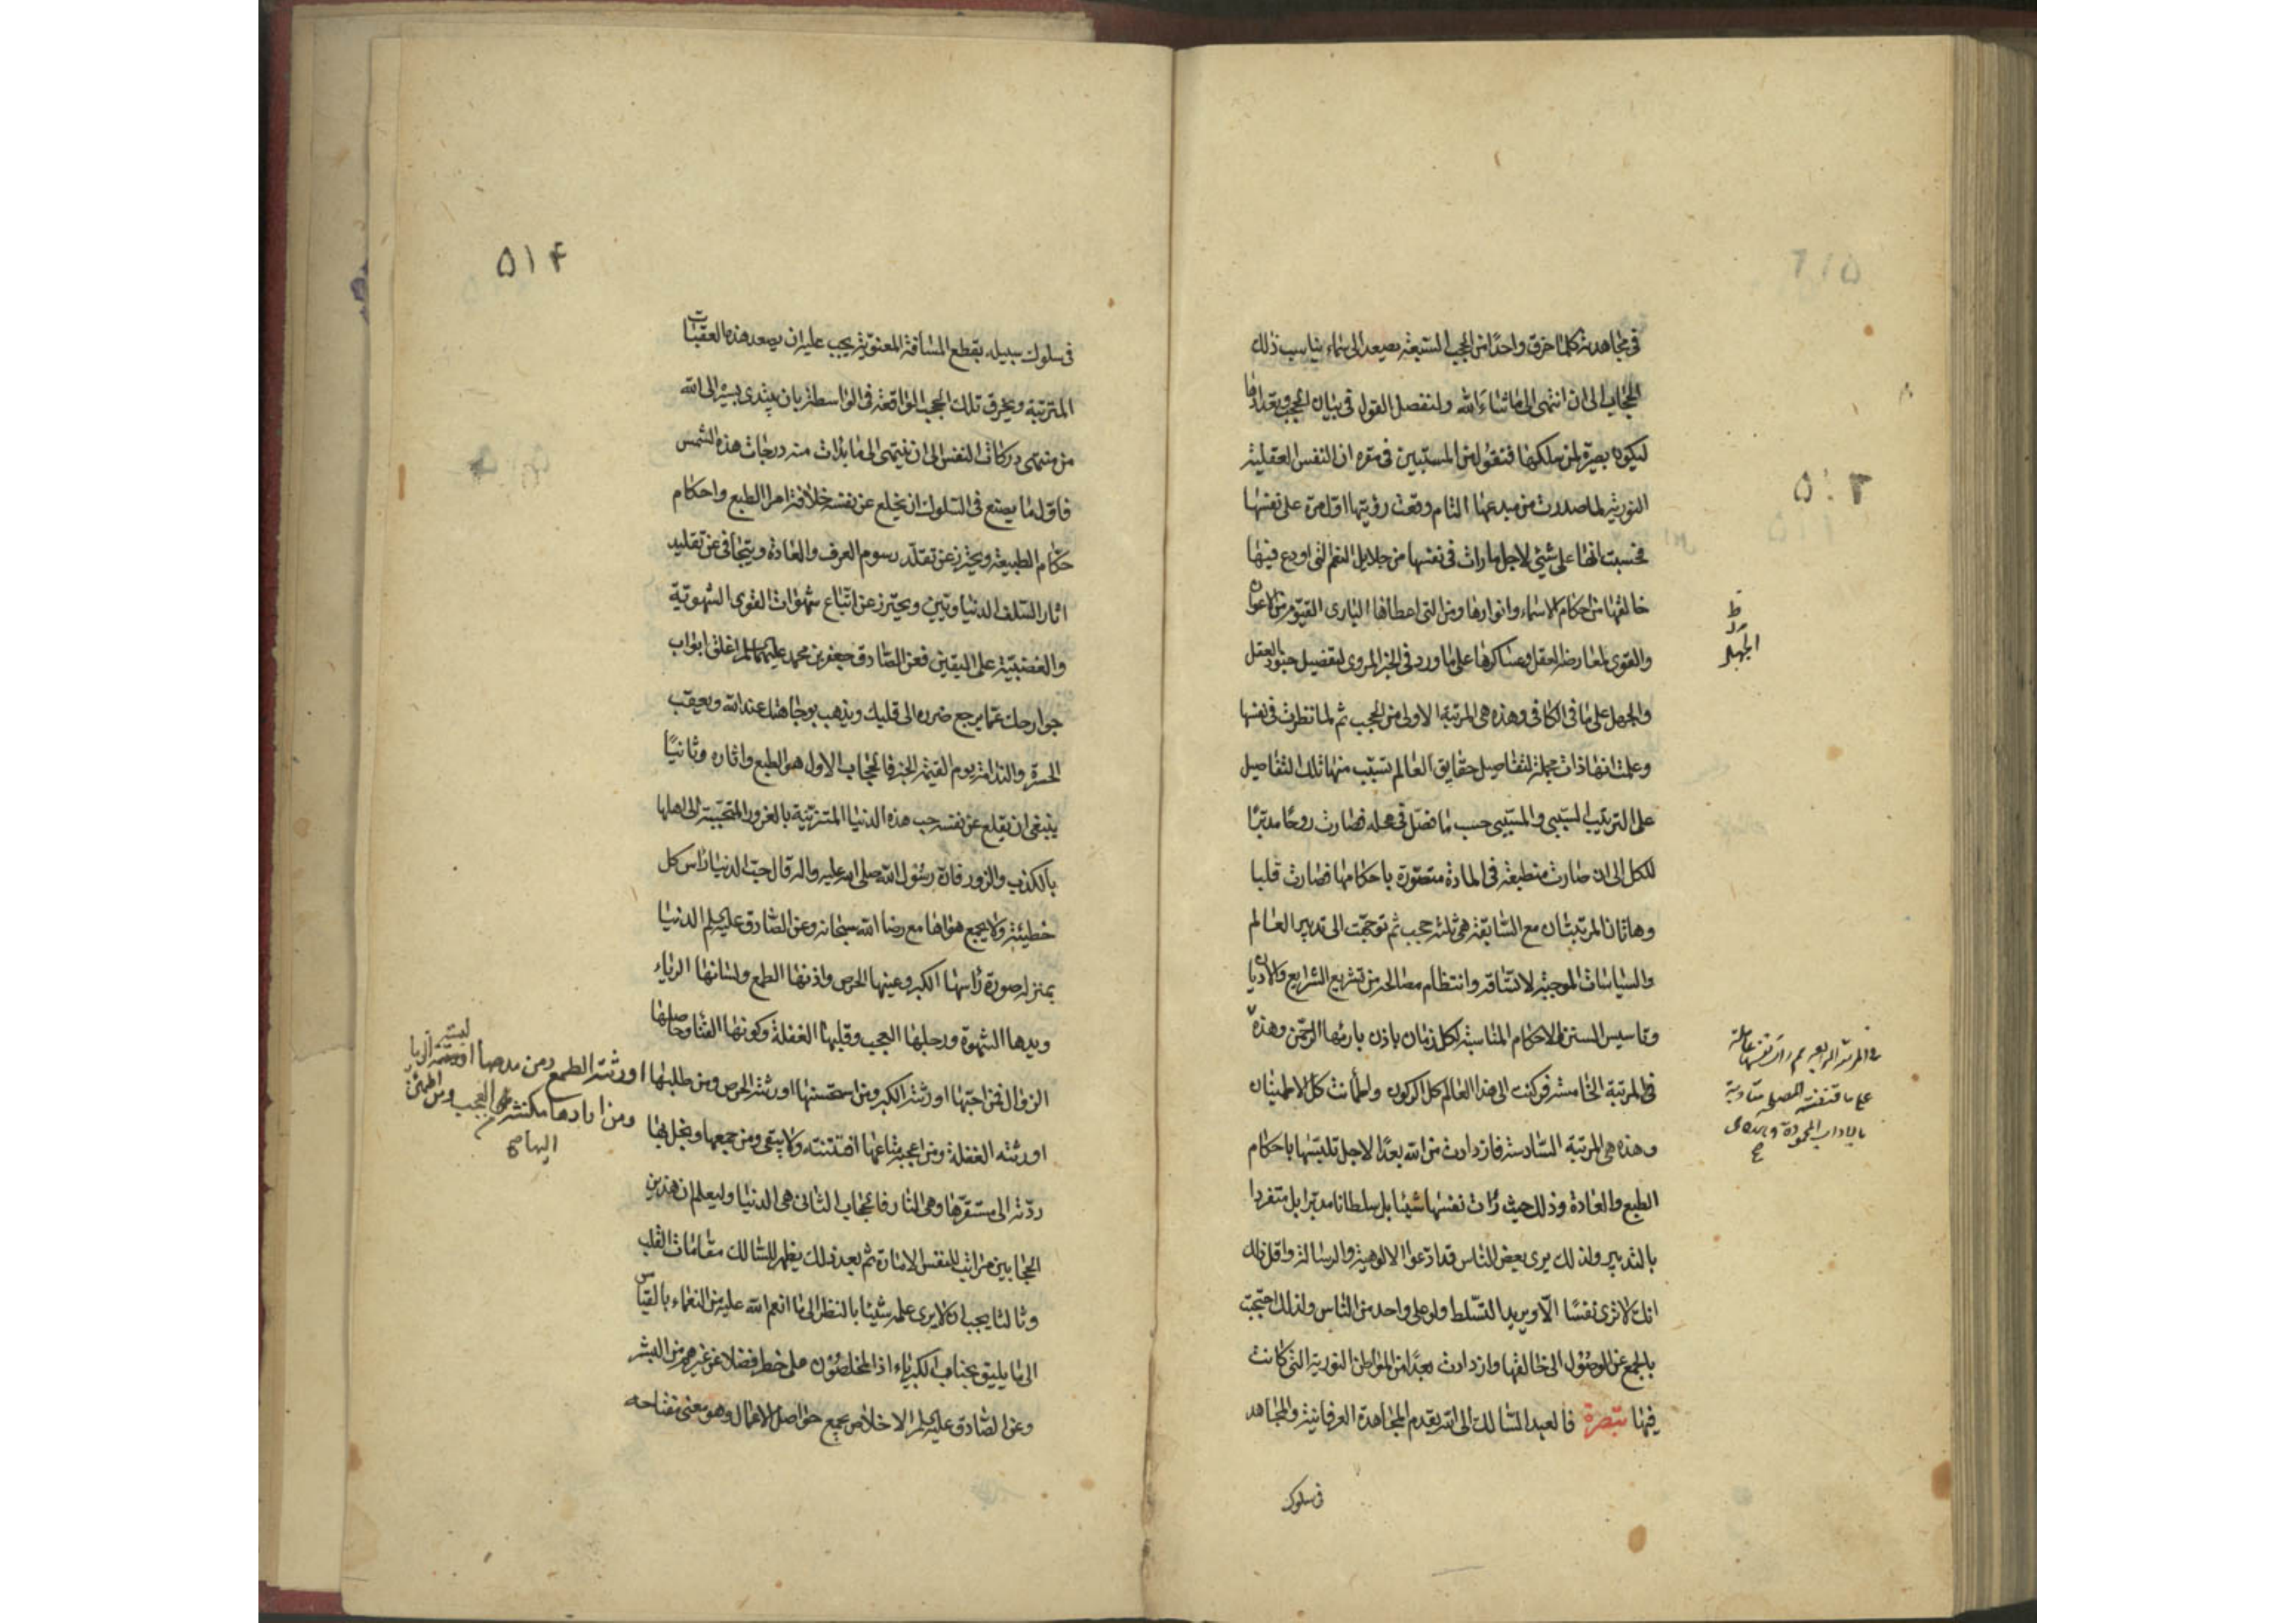 في مجاهدته كلما خرق واحدًا من الحجب السبعة يصعد الى سماء يناسب ذلك
الحجاب الى ان انتهى الى ما شاء الله ولنفصل القول في بيان الحجب وتعدادها
ليكون بصيرة لمن سلكها فنقول من المستبين في مقره ان النفس العقلية
النورية لما صدرت من مبدعها التام وقعت رؤيتها اول مرة على نفسها
فحسبت انها على شيء لاجل ما رات في نفسها من جلايل النعم التي اودع فيها
خالقها من احكام الاسماء وانوارها ومن التي اعطاها الباري القيوم من الاعوان
والقوى لمعارضة العقل وعساكرها على ما ورد في الخبر المروي لتفصيل جنود العقل
والجهل على ما في الكافي وهذه هي المرتبة الاولى من الحجب ثم لما نظرت في نفسها
وعلمت انها ذات مجملة لتفاصيل حقايق العالم تسبب منها تلك التفاصيل
على الترتيب السببي والمسببي حسب ما فصل في محله فصارت روحًا مدبرًا
للكل الى ان صارت منطبعة في المادة متصورة باحكامها فصارت قلبا
وهاتان المرتبتان مع السابقة هي ثلثة حجب ثم توجهت الى تدبير العالم
والسياسات الموجبة لاتساقه وانتظام مصالحه من تشريع الشرايع والاديان
وتاسيس السنن والاحكام المناسبة لكل زمان باذن بارئها الرحمن وهذه
في المرتبة الخامسة فركنت الى هذا العالم كل الركون واطمأنت كل الاطمينان
وهذه هي المرتبة السادسة فازدادت من الله بعدًا لاجل تلبسها باحكام
الطبع والعادة وذلك حيث رأت نفسها شيئا بل سلطانا مدبرا بل متفردا
بالتدبير ولذلك يرى بعض الناس قد ادعوا الالوهية والرسالة واقل ذلك
انك لا ترى نفسًا الا ويريد التسلط ولو على واحد من الناس ولذلك احتجبت
بالجمع عن الوصول الى خالقها وازدادت بعدًا من المواطن النورية التي كانت
فيها تبصرة فالعبد السالك الى الله يقدم المجاهدة العرفانية والمجاهد
في سلوك
٥١٣
ظ
الجهل
المرتبة الرابعة ثم رأت نفسها عاملة
على ما
بالاداب المحمودة
٥١٤
في سلوك سبيله بقطع المسافة المعنوية يجب عليه ان يصعد هذه العقبات
المترتبة ويخرق تلك الحجب الواقعة في الواسطة بان يبتدي بسيره الى الله
من منتهى دركات النفس الى ان ينتهي الى ما بدأت منه درجات هذه الشمس
فاول ما يصنع في السلوك ان يخلع عن نفسه خلافة امر الطبع واحكام
حكام الطبيعة ويحترز عن تقلد رسوم العرف والعادة ويتجافى عن تقليد
اثار السلف الدنياويين ويحترز عن اتباع شهوات القوى الشهوية
والغضبية على اليقين فعن الصادق جعفر بن محمد عليهما السلم اغلق ابواب
جوارحك عما يرجع ضرره الى قلبك ويذهب بوجاهتك عند الله ويعقب
الحسرة والندامة يوم القيمة الخبر فالحجاب الاول هو الطبع واثاره وثانيًا
ينبغي ان يقلع عن نفسه حب هذه الدنيا المتزينة بالغرور المتحببة الى اهلها
بالكذب والزور فان رسول الله صلى الله عليه واله قال حب الدنيا رأس كل
خطيئة ولا يجمع هواها مع رضا الله سبحانه وعن الصادق عليه السلم الدنيا
بمنزلة صورة رأسها الكبر وعينها الحرص واذنها الطمع ولسانها الرياء
ويدها الشهوة ورجلها العجب وقلبها الغفلة وكونها الفنا وحاصلها
الزوال فمن احبها اورثته الكبر ومن استحسنها اورثته الحرص ومن طلبها اورثته الطمع ومن مدحها البسته الريا
اورثته الغفلة ومن اعجبه متاعها افتتنته ولا يبقى ومن جمعها وبخل بها
ومن ارادها مكنته من العجب ومن اطمئن
اليها صح
ردته الى مستقرها وهي النار فالحجاب الثاني هي الدنيا وليعلم ان هذين
الحجابين مراتب للنفس الامارة ثم بعد ذلك يظهر للسالك مقامات القلب
وثالثا يجب ان لا يرى عمله شيئا بالنظر الى ما انعم الله عليه من النعماء بالقياس
الى ما يليق بجناب الكبرياء اذ المخلصون على خطر فضلا عن غيرهم من البشر
وعن الصادق عليه السلم الاخلاص يجمع حواصل الاعمال وهو معنى مفتاحه